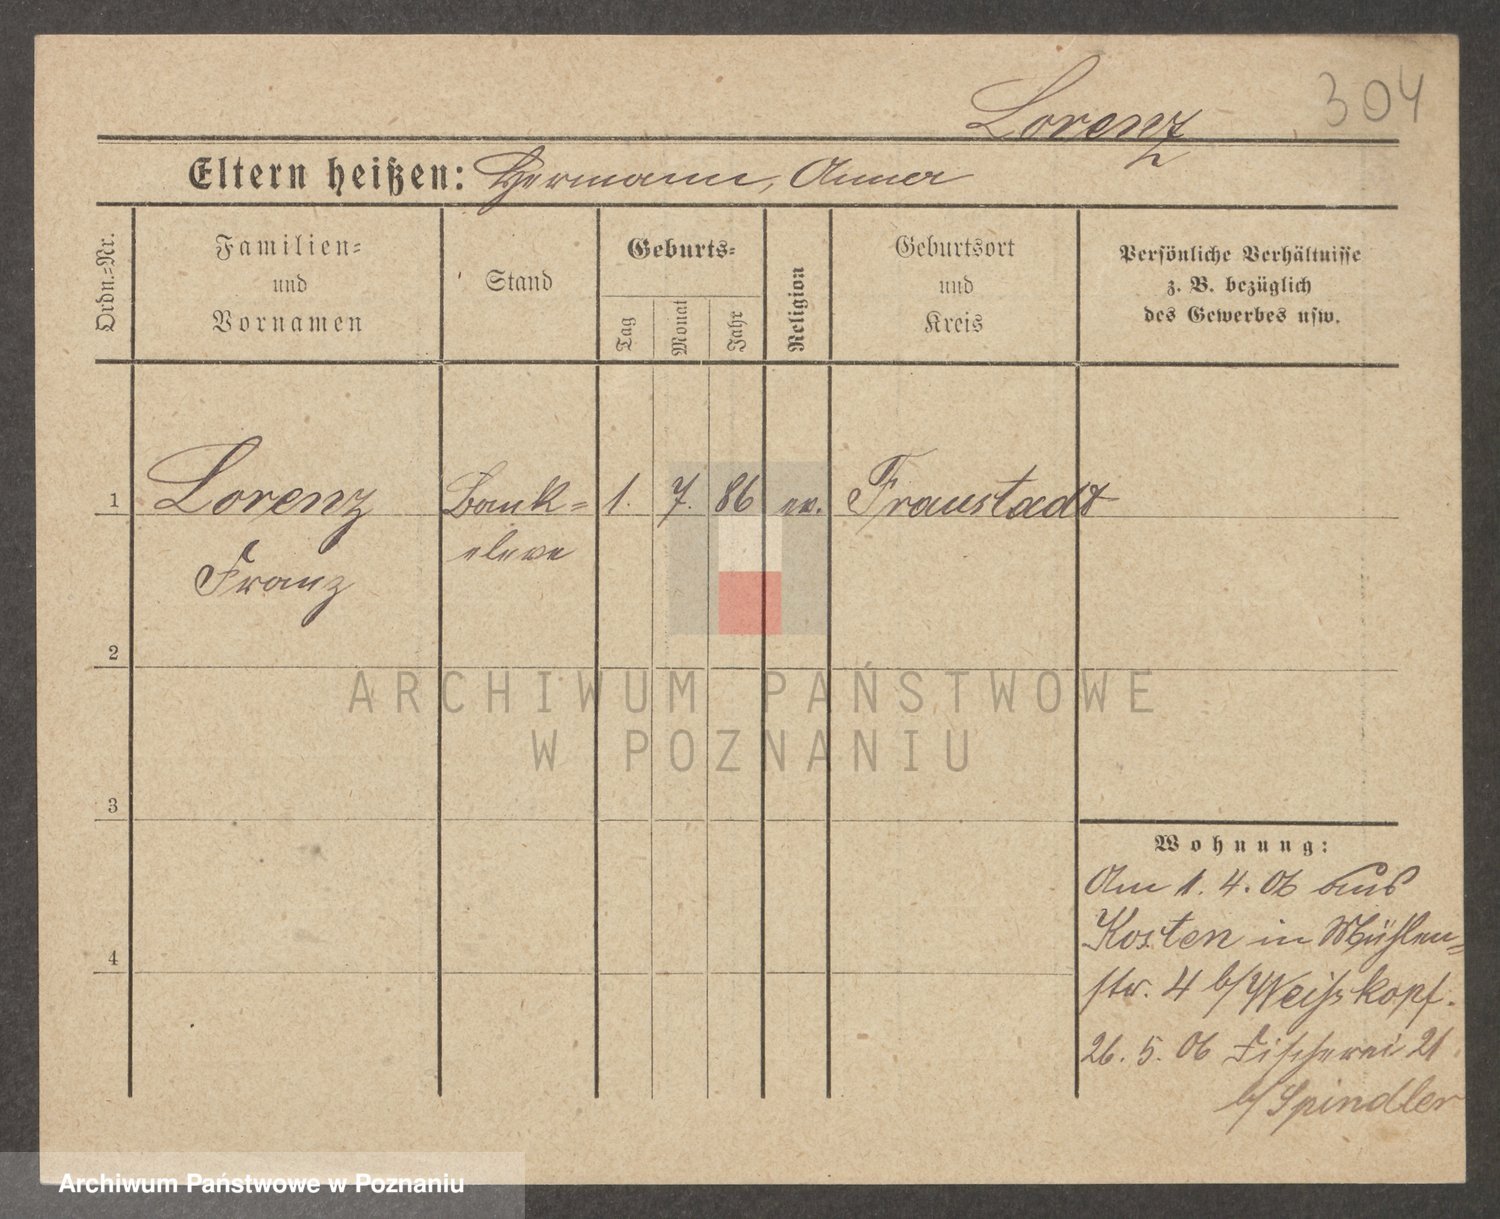 304
Lorenz
Eltern heißen: Hermann, Anna
Ordn.=Nr.
Familien=
und
Vornamen
Stand
Geburts=
Tag
Monat
Jahr
Religion
Geburtsort
und
Kreis
Persönliche Verhältnisse
z. B. bezüglich
des Gewerbes usw.
1 Lorenz Bank= 1. 7. 86 ev. Fraustadt
eleve
Franz
2
3
4
Wohnung:
Am 1. 4. 06 aus
Kosten in Mühlen=
str. 4 b/Weißkopf.
26. 5. 06 Fischerei 21
b/Spindler
ARCHIWUM PAŃSTWOWE
W POZNANIU
Archiwum Państwowe w Poznaniu